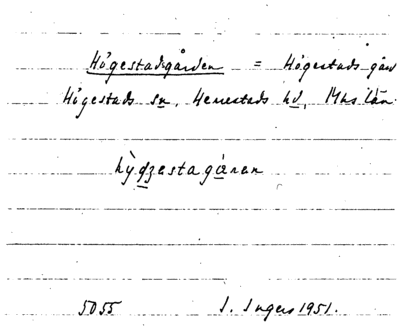 Högestadsgården = Högestads gård
Högestads sn, Herrestads hd, Mhs län
hỳgzestagànen
5055 I. Ingers 1951.